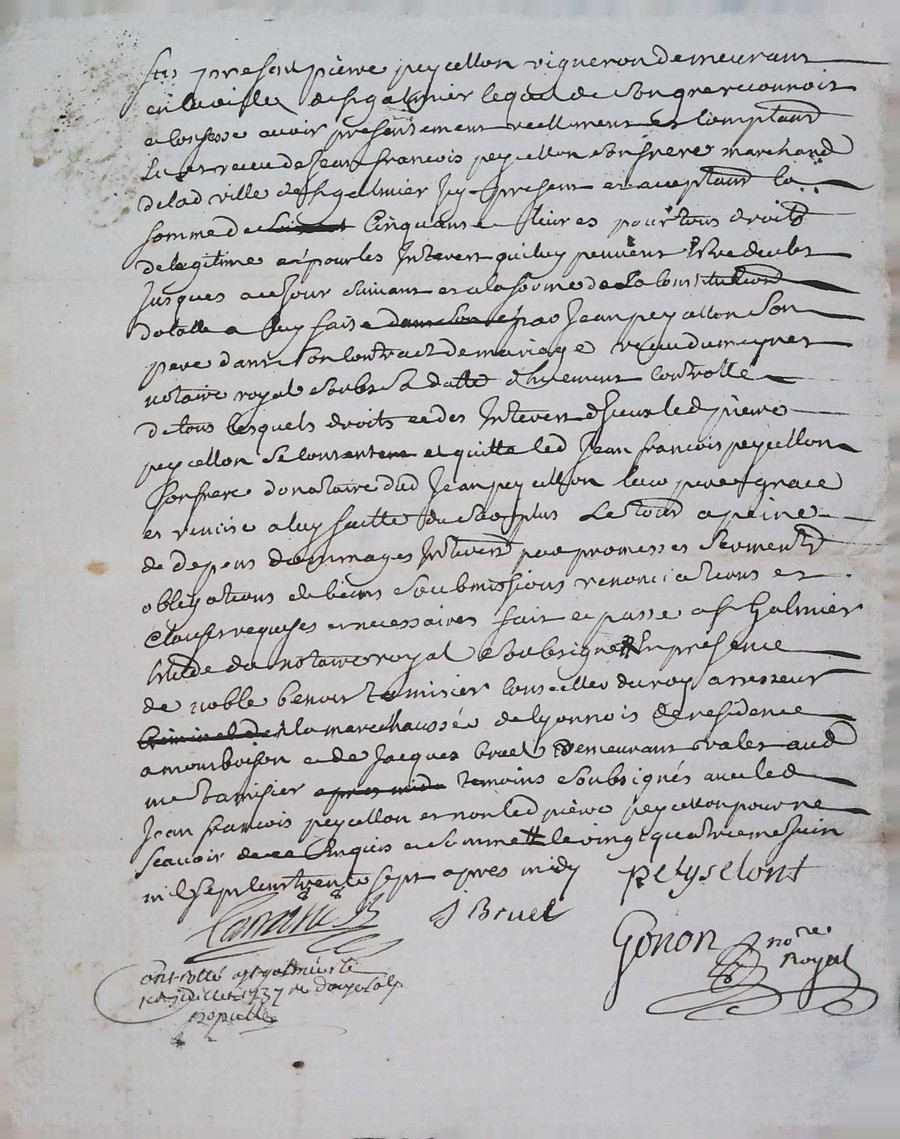 fut present pierre peycellon vigneron demeurant
en la ville de st galmier lequel de son gré reconnoit
et confesse avoir presentement reellement et comptant
eu et receu de Jean francois peycellon son frere marchand
de lad ville de st galmier Icy present et acceptant la
somme de cinquante livres pour tous droits
de legitime et pour les Interest qui luy peuvent etre deubt
Jusques au Jour suivant et a la forme de la constitution
dotalle a luy faite par Jean peycellon son
pere dans son contract de mariage receu dumeynet
notaire royal soubs sa datte d'huement controllé
de tous lesquels droits et des Interest d'Iceux led pierre
peycellon se contente et quitte led Jean francois peycellon
son frere donataire dud Jean peycellon leur pere grace
et remise a luy faitte du surplus Le tout a peine
de depens dommages Interest par promesses serment
obligations de biens soubmissions renonciations et
clauses requises et necessaires fait et passé a st Galmier
etude du notaire royal soubsigné En presence
de noble benoit tamisier conseiller du roy assesseur
a la marechaussée de lyonnois de residence
a montbrison et de Jacques bruel demeurant valet aud
me tamisier temoins soubsignés avec led
Jean francois peycellon et non led pierre peycellon pour ne
scavoir de ce Enquis et sommé le vingt quatrieme Juin
mil sept cent trente sept apres midy
peyselont
J Bruel
Gonon nore
Royal
controllé a st galmier le
1737